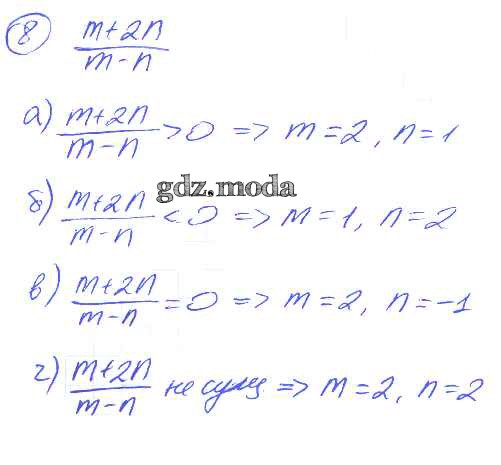 8 (m+2n)/(m-n)
а) (m+2n)/(m-n) > 0 => m=2, n=1
gdz.moda
б) (m+2n)/(m-n) < 0 => m=1, n=2
в) (m+2n)/(m-n) = 0 => m=2, n=-1
г) (m+2n)/(m-n) не сущ => m=2, n=2